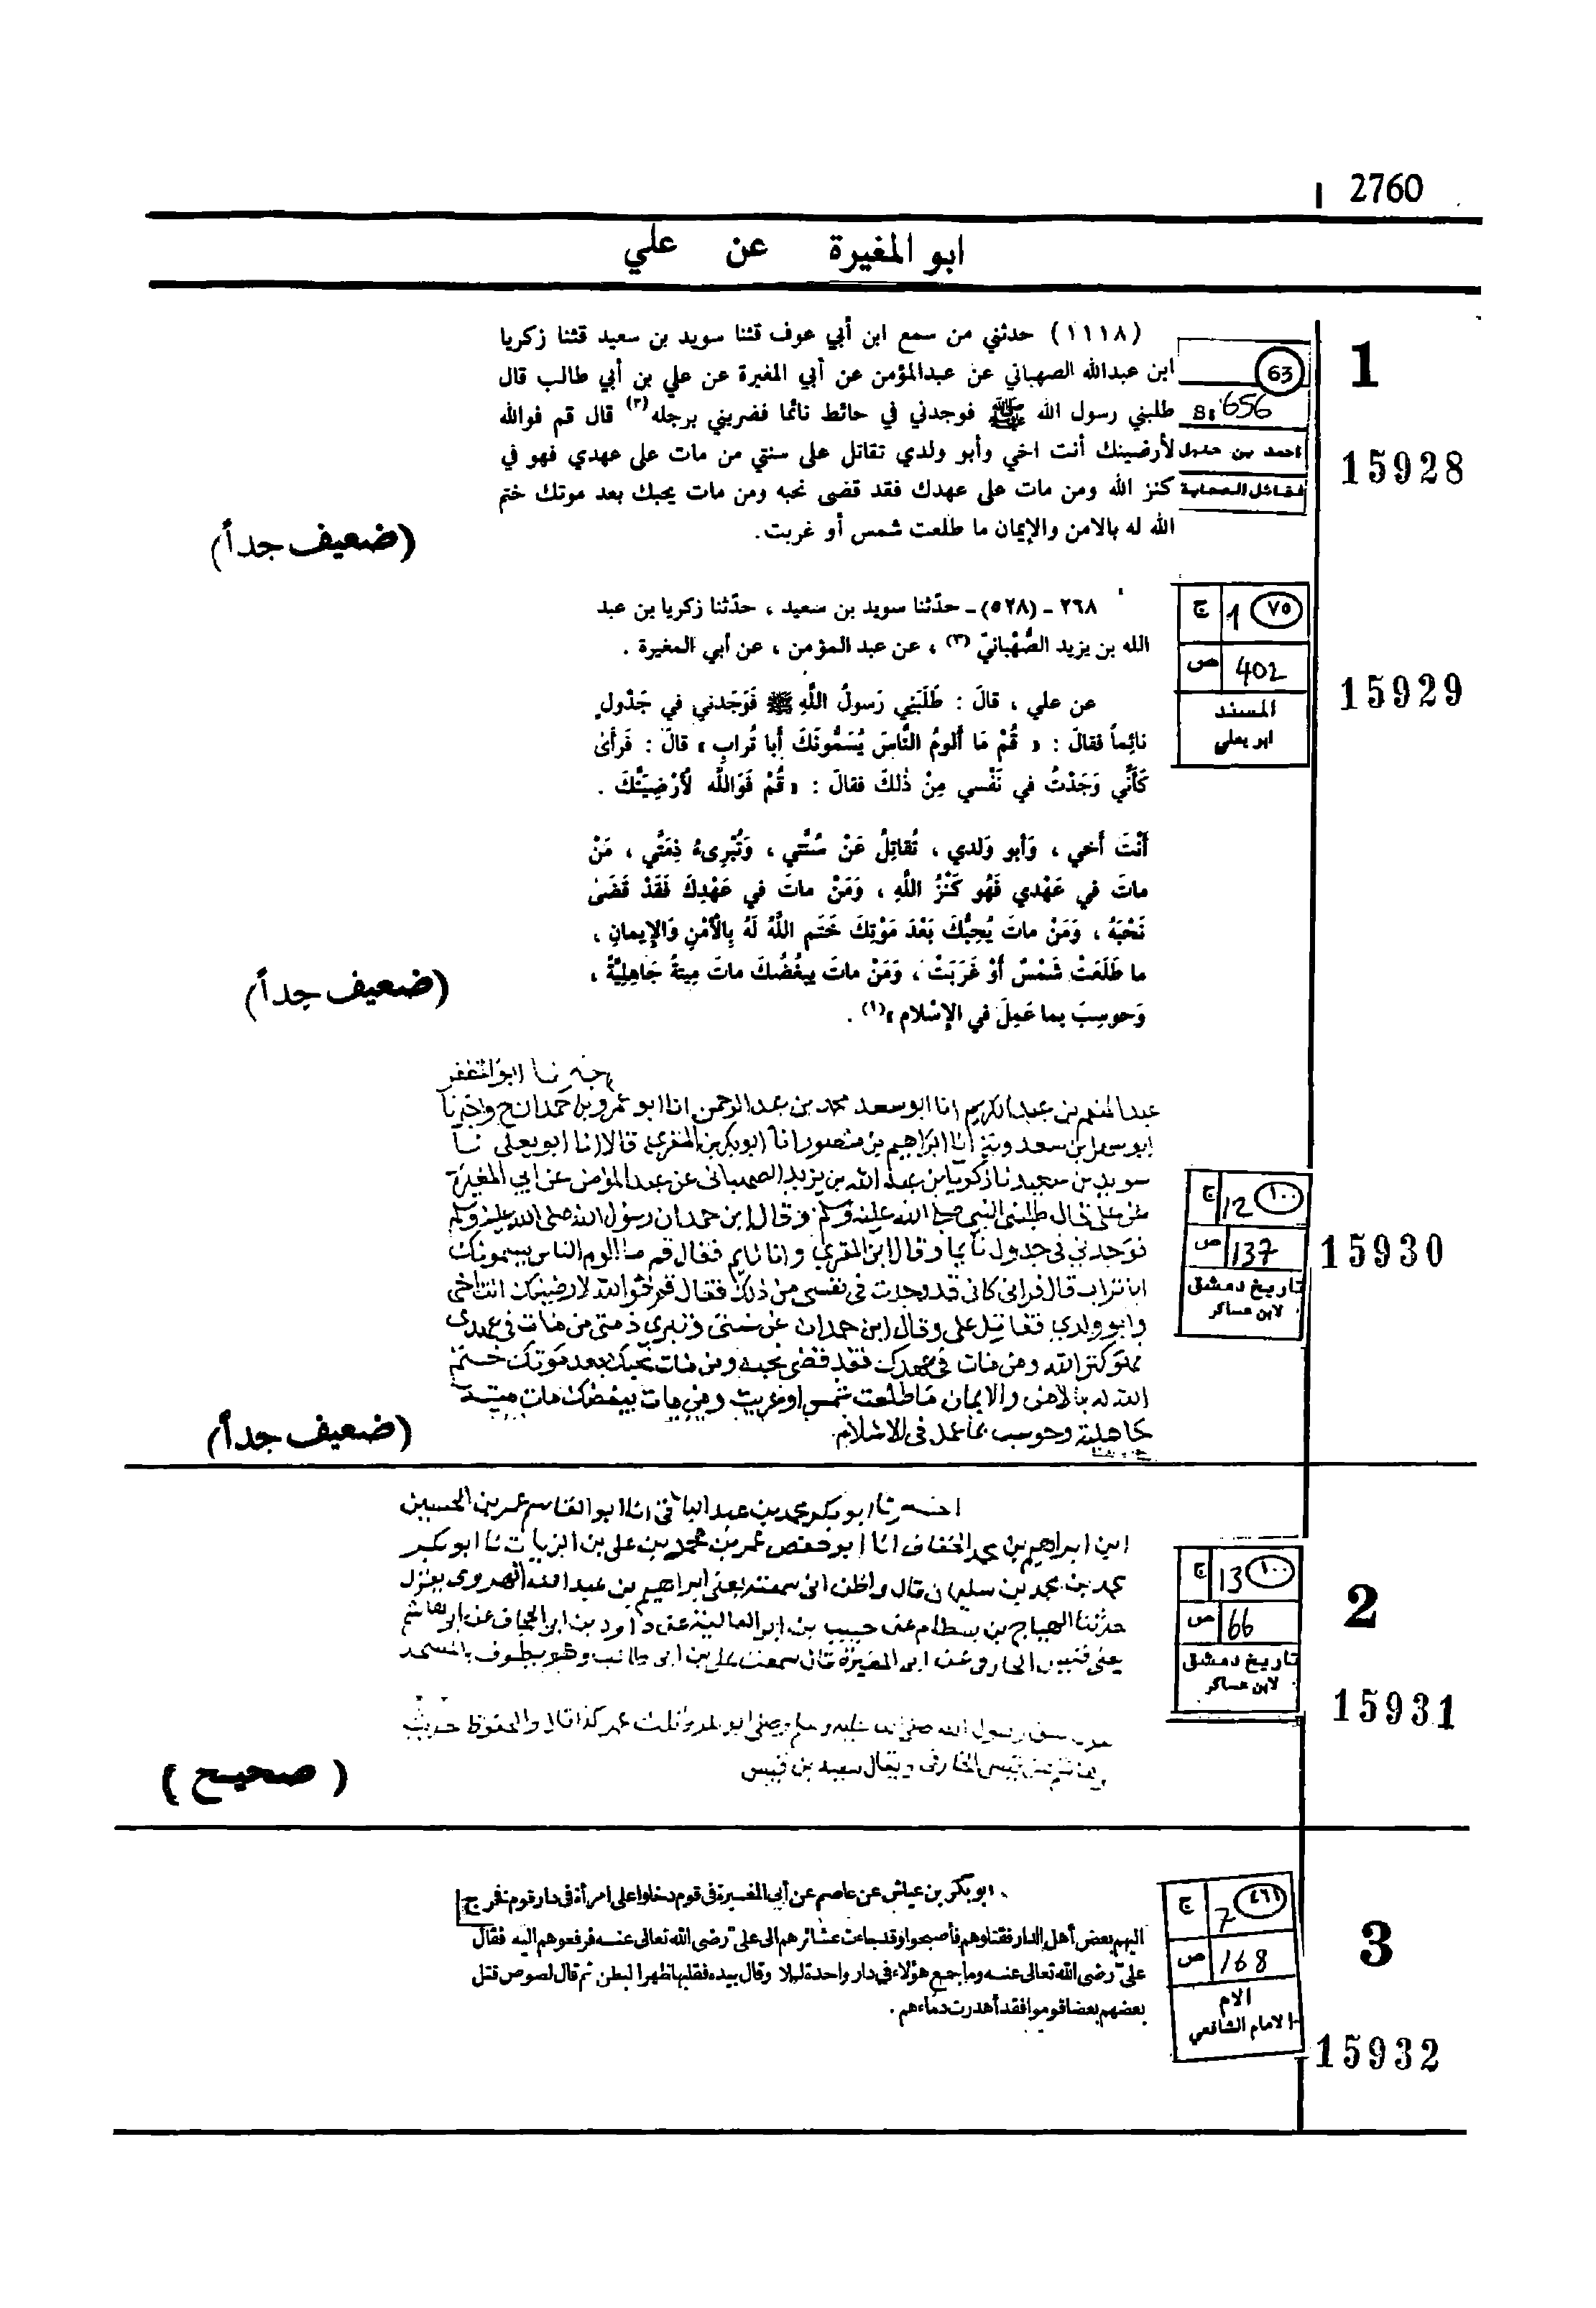 2760
ابو المغيرة عن علي
1
(١١١٨) حدثني من سمع ابن أبي عوف قثنا سويد بن سعيد قثنا زكريا
ابن عبدالله الصهباني عن عبدالمؤمن عن أبي المغيرة عن علي بن أبي طالب قال
طلبني رسول الله ﷺ فوجدني في حائط نائما فضربني برجله(٣) قال قم فوالله
لأرضينك أنت اخي وأبو ولدي تقاتل على سنتي من مات على عهدي فهو في
كنز الله ومن مات على عهدك فقد قضى نحبه ومن مات يحبك بعد موتك ختم
الله له بالامن والإيمان ما طلعت شمس أو غربت.
63
656
احمد بن حنبل
فضائل الصحابة
15928
(ضعيف جداً)
٢٦٨ - (٥٢٨) - حدّثنا سويد بن سعيد ، حدّثنا زكريا بن عبد
الله بن يزيد الصُّهْبانيّ (٣) ، عن عبد المؤمن ، عن أبي المغيرة .
عن علي ، قالَ : طَلَبَني رَسولُ اللَّهِ ﷺ فَوَجَدني في جَدْولٍ
نائِماً فقالَ : « قُمْ مَا أَلومُ النَّاسَ يُسَمُّونَكَ أَبا تُرابٍ » قالَ : فَرأىٰ
كَأَنِّي وَجَدْتُ في نَفْسي مِنْ ذٰلكَ فقالَ : « قُمْ فَوَاللَّه لَأرْضِيَنَّكَ .
أَنْتَ أَخي ، وَأبو وَلدي ، تُقاتِلُ عَنْ سُنَّتي ، وَتُبْرِىءُ ذِمَتَّي ، مَنْ
ماتَ في عَهْدي فَهُو كَنْزُ اللَّهِ ، وَمَنْ ماتَ في عَهْدِكَ فَقَدْ قَضَىٰ
نَحْبَهُ ، وَمَنْ ماتَ يُحِبُّكَ بَعْدَ مَوْتِكَ خَتَم اللَّهُ لَهُ بِالأَمْنِ وَالإِيمانِ ،
ما طَلَعَتْ شَمْسٌ أَوْ غَرَبَتْ ، وَمَنْ ماتَ يبغُضُكَ ماتَ مِيتةً جَاهِلِيَّةً ،
وَحوسِبَ بما عَمِلَ في الإسْلام »(١) .
٧٥
1 ج
402 ص
المسند
ابو يعلى
15929
(ضعيف جداً)
اخبرنا ابو المظفر
عبد المنعم بن عبد الكريم انا ابو سعد محمد بن عبد الرحمن انا ابو عمرو بن حمدان ح واخبرنا
ابراهيم بن منصور انا ابو بكر بن المقري قالا انا ابو يعلى نا
سويد بن سعيد نا زكريا بن عبد الله بن يزيد الصهباني عن عبد المؤمن عن ابي المغيرة
عن علي قال طلبني النبي صلى الله عليه وسلم وقال ابن حمدان رسول الله صلى الله عليه وسلم
فوجدني في جدول نايما وقال ابن المقري وانا نايم فقال قم ما الوم الناس يسمونك
ابا تراب قال فراني كاني قد وجدت في نفسي من ذلك فقال قم فوالله لارضينك انت اخي
وابو ولدي تقاتل على وقال ابن حمدان عن سنتي وتبري ذمتي من مات في عهدي
فهو كنز الله ومن مات في عهدك فقد قضى نحبه ومن مات يحبك بعد موتك ختم
الله له بالامن والايمان ما طلعت شمس او غربت ومن مات يبغضك مات ميتة
جاهلية وحوسب بما عمل في الاسلام
١٠٠
12 ج
137 ص
تاريخ دمشق
لابن عساكر
15930
(ضعيف جداً)
2
اخبرنا ابو بكر محمد بن عبد الباقي انا ابو القاسم عمر بن الحسين
ابن ابراهيم بن محمد الخفاف انا ابو حفص عمر بن محمد بن علي بن الزيات نا ابو بكر
محمد بن محمد بن سليمان قال واظن اني سمعته يعني ابراهيم بن عبد الله الهروي
حدثنا الهياج بن بسطام عن حبيب بن ابو العالية عن داود بن ابي الجحاف عن ابو هاشم
يعني قيس الخارفي عن ابي المغيرة قال سمعت علي بن ابي طالب وهو يطوف بالمسجد
سبق رسول الله صلى الله عليه وسلم وصلى ابو بكر وثلث عمر كذا قال والمحفوظ حديث
قيس الخارفي ويقال سعيد بن قيس
١٠٠
13 ج
66 ص
تاريخ دمشق
لابن عساكر
15931
(صحيح)
3
ابو بكر بن عياش عن عاصم عن أبي المغيرة في قوم دخلوا على امرأة في دار قوم فخرج
اليهم بعض أهل الدار فقتلوهم فأصبحوا وقد جاءت عشائرهم الى علي رضي الله تعالى عنه فرفعوهم اليه فقال
علي رضي الله تعالى عنه وما جمع هؤلاء في دار واحدة ليلا وقال بيده فقلبها ظهرا لبطن ثم قال لصوص قتل
بعضهم بعضا قوموا فقد أهدرت دماءهم .
7 ج
168 ص
الام
الامام الشافعي
15932